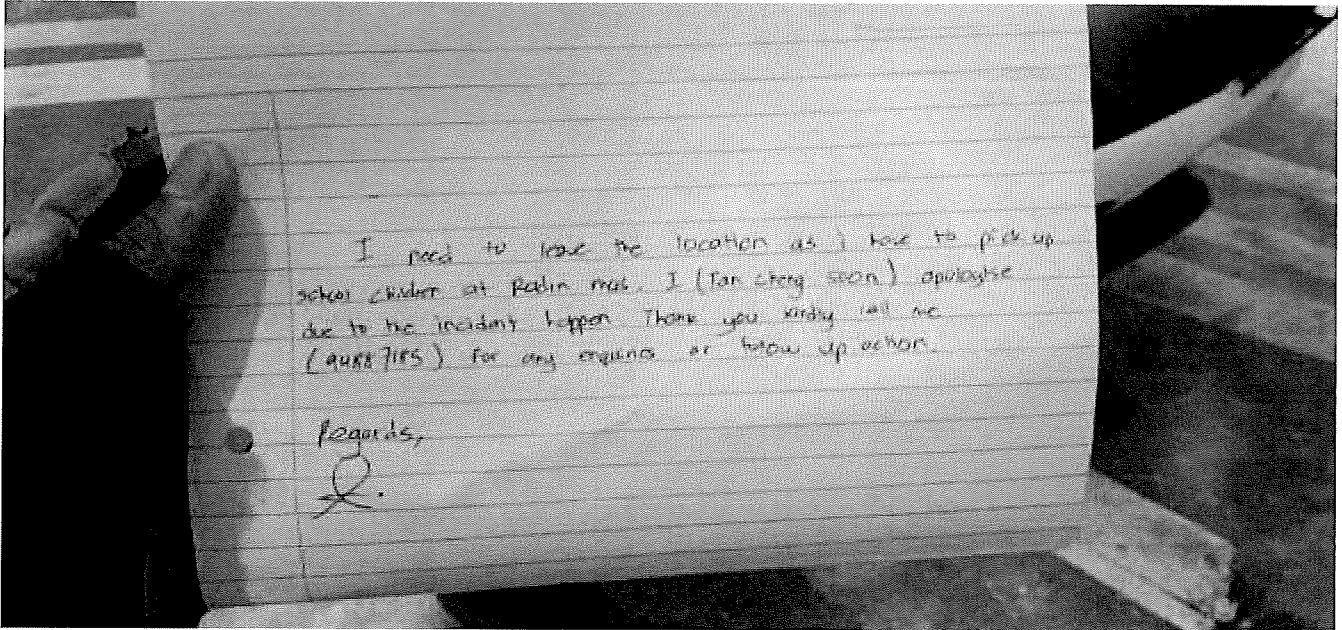 I need to leave the location as i have to pick up
school children at Radin mas. I (Tan cheng soon) apologise
due to the incident happen Thank you kindly call me
(94887185) for any enquiries or follow up action.
Regards,